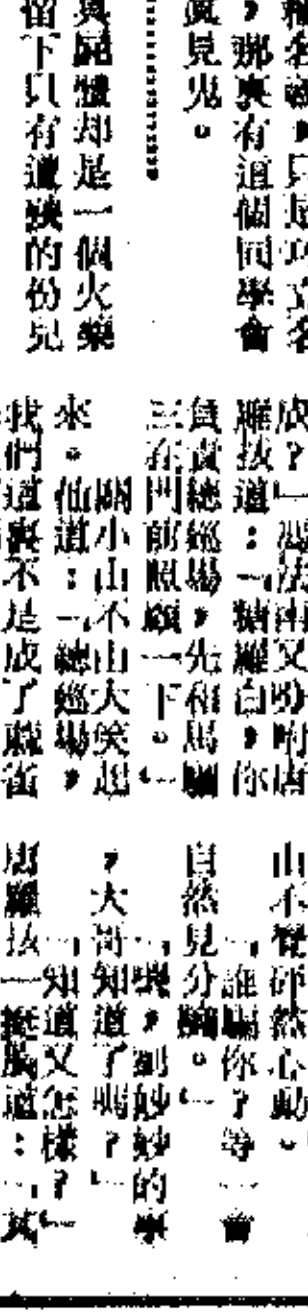 種名
，那裏有這個同學會
真見鬼。
…………
具屍體却是一個火藥
留下只有遭殃的份兒
成？」馮法
羅拔道：「糖羅白，你
負責總巡場，先和馬騮
三在門前照顧一下。」
關小山不由大笑起
來。他道：「總巡場，
我們這裏不是成了戲
山不覺砰然心動。
「誰騙你？等一會
自然見分曉。」
「噢，到妙妙的
，大哥知道了嗎？」
「知道又怎樣？」
唐羅拔一挺胸道：「其